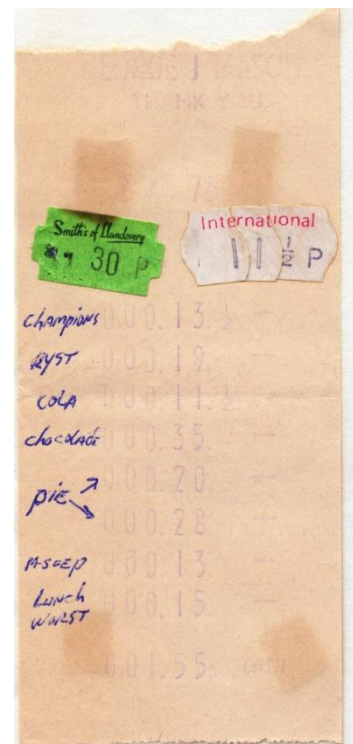 THANK YOU
75
Smith's of Llandovery
30 P
International
11 ½ P
champions 000.13.½ —
RYST 000.19 —
COLA 000.11.½ —
chocolade 000.35 —
pie 000.20 —
000.28 —
000.13 —
LUNCH 000.15 —
WORST
001.55